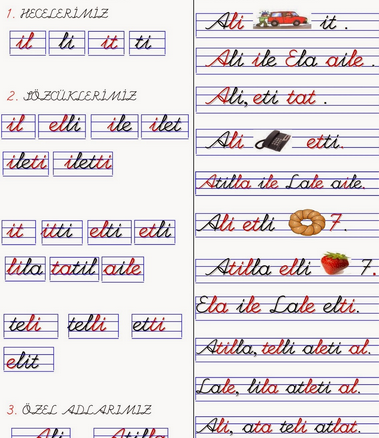 1. HECELERİMİZ
il li it ti
2. SÖZCÜKLERİMİZ
il elli ile ilet
ileti iletti
it itti elti etli
lila tatil aile
teli telli etti
elit
3. ÖZEL ADLARIMIZ
Ali Atilla
Ali it .
Ali ile Ela aile .
Ali, eti tat .
Ali etti.
Atilla ile Lale aile.
Ali etli 7.
Atilla elli 7.
Ela ile Lale elti.
Atilla, telli aleti al.
Lale, lila atleti al.
Ali, ata teli atlat.